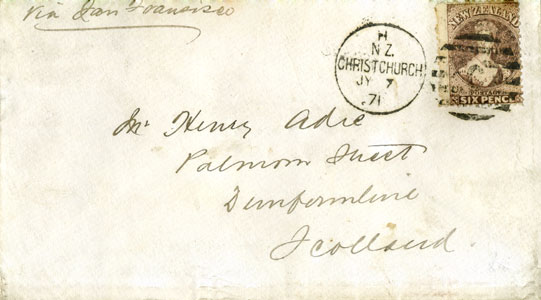 Via San Francisco
H
N Z.
CHRISTCHURCH
JY 7
71
NEW ZEALAND
POSTAGE
SIX PENCE
Mr Henry Adie
Street
Dunfermline
Scotland.